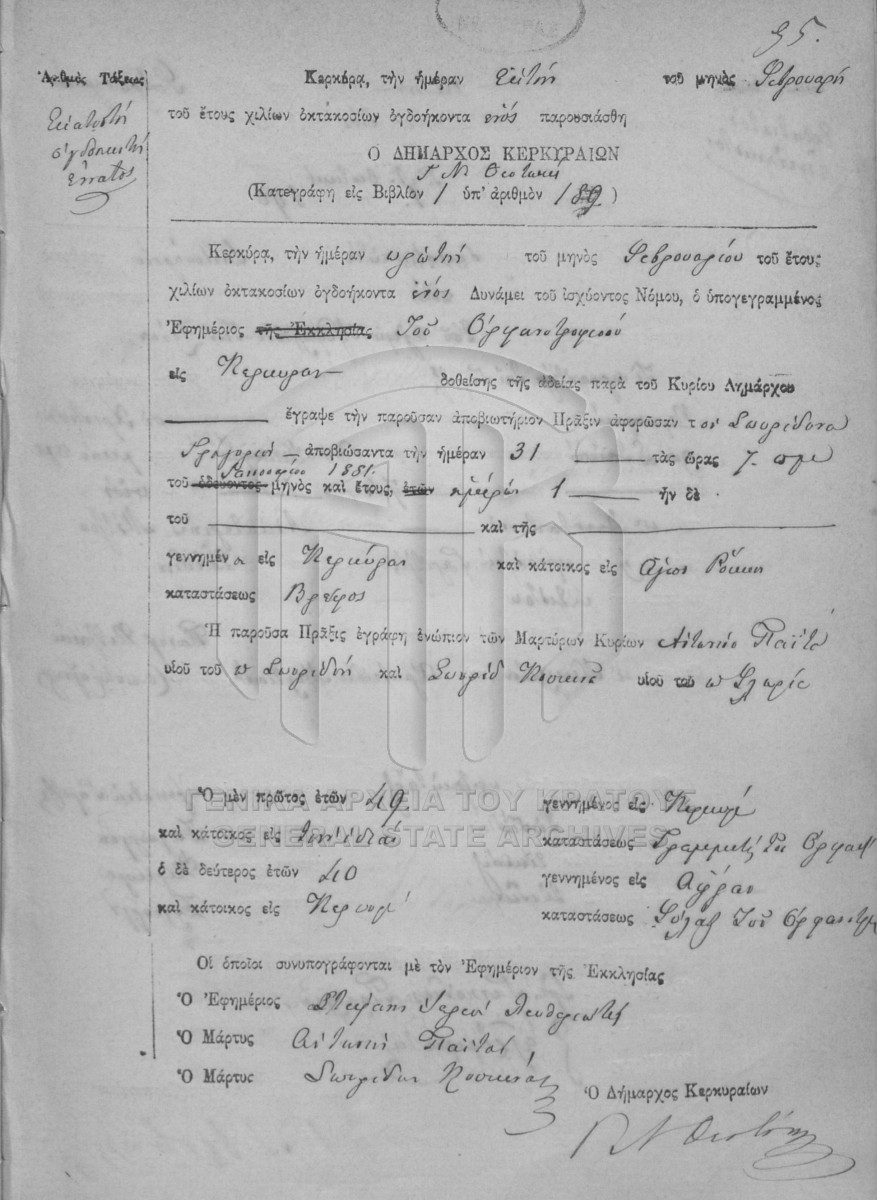 95.
Ἀριθμὸς Τάξεως
Ἑκατοστὴ
ὀγδοηκοστὴ
ἔννατος
Κερκύρα, τὴν ἡμέραν ἕκτην τοῦ μηνὸς Φεβρουαρίου
τοῦ ἔτους χιλίων ὀκτακοσίων ὀγδοήκοντα ἑνὸς παρουσιάσθη
Ο ΔΗΜΑΡΧΟΣ ΚΕΡΚΥΡΑΙΩΝ
Γ Ν Θεοτόκης
(Κατεγράφη εἰς Βιβλίον 1 ὑπ' ἀριθμὸν 189)
Κερκύρα, τὴν ἡμέραν πρώτην τοῦ μηνὸς Φεβρουαρίου τοῦ ἔτους
χιλίων ὀκτακοσίων ὀγδοήκοντα ἑνὸς Δυνάμει τοῦ ἰσχύοντος Νόμου, ὁ ὑπογεγραμμένος
Ἐφημέριος τῆς Ἐκκλησίας Τοῦ Ὀρφανοτροφείου
εἰς Κέρκυραν δοθείσης τῆς ἀδείας παρὰ τοῦ Κυρίου Δημάρχου
ἔγραψε τὴν παροῦσαν ἀποβιωτήριον Πρᾶξιν ἀφορῶσαν τὸν Σπυρίδωνα
Γρηγορίου ἀποβιώσαντα τὴν ἡμέραν 31 τὰς ὥρας 7. πμ
Ἰανουαρίου 1881.
τοῦ ὁδεύοντος μηνὸς καὶ ἔτους, ἐτῶν ἡμερῶν 1 ἦν δὲ
τοῦ καὶ τῆς
γεννημένον εἰς Κέρκυραν καὶ κάτοικος εἰς Ἅγιος Ρόκκος
καταστάσεως Βρέφος
Ἡ παροῦσα Πρᾶξις ἐγράφη ἐνώπιον τῶν Μαρτύρων Κυρίων Ἀντωνίου Παϊτα
υἱοῦ τοῦ π Σπυρίδων καὶ Σπυρίδ υἱοῦ τοῦ π
ΓΕΝΙΚΑ ΑΡΧΕΙΑ ΤΟΥ ΚΡΑΤΟΥΣ
GENERAL STATE ARCHIVES
Ὁ μὲν πρῶτος ἐτῶν 49 γεννημένος εἰς Κέρκυρα
καὶ κάτοικος εἰς τὴν ἰδίαν καταστάσεως Γραμματεὺς τοῦ Ὀρφαν
ὁ δὲ δεύτερος ἐτῶν 40 γεννημένος εἰς
καὶ κάτοικος εἰς Κέρκυρα καταστάσεως Φύλαξ Τοῦ Ὀρφανοτρ
Οἱ ὁποῖοι συνυπογράφονται μὲ τὸν Ἐφημέριον τῆς Ἐκκλησίας
Ὁ Ἐφημέριος Ἱερεὺς
Ὁ Μάρτυς Ἀντώνιος Παϊτας
Ὁ Μάρτυς Σπυρίδων
Ὁ Δήμαρχος Κερκυραίων
Γ Ν Θεοτόκης